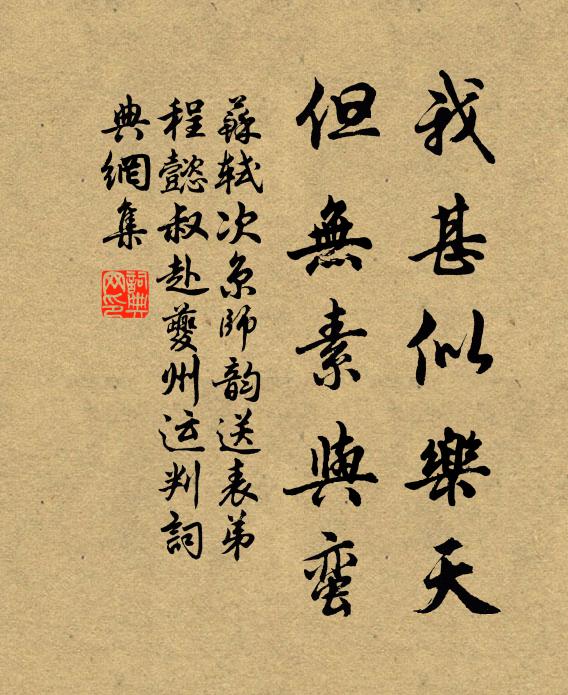 我甚似樂天
但無素與蛮
蘇軾次京師韵送表弟
程懿叔赴夔州运判詞
典網集
詞典
网印